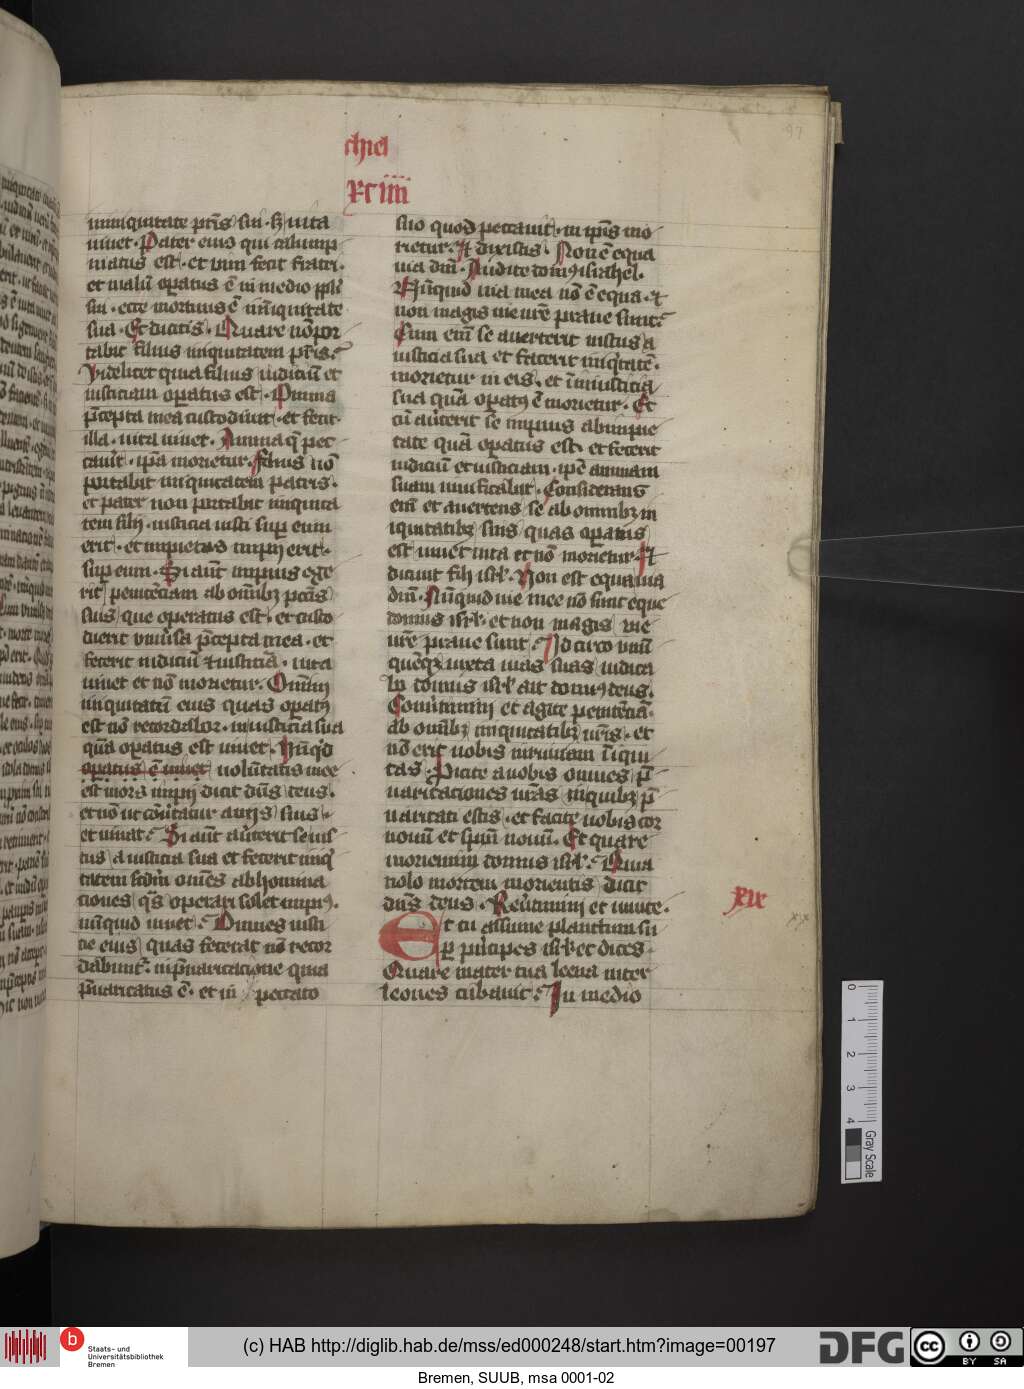 chiel
xciiii
in iniquitate pr̄is sui · sꝫ uita
uiuet · Pater eius qui calump
niatus est · et uim fecit fratri ·
et malū operatus ē in medio ppl̓i
sui · ecce mortuus ē in īiquitate
sua · Et dicitis · Quare nō por
tabit filius iniquitatem pr̄is ·
Videlicet quia filius iudiciū et
iusticiam operatus est · Omnia
p̄cepta mea custodiuit · et fecit
illa · uita uiuet · Anima q̄ pec
cauīt · ip̄a morietur · filius nō
portabit iniquitatem patris ·
et pater non portabit iniquita
tem filij · iusticia iusti sup̱ eum
erit · et impietas impij erit ·
sup̱ eum · Si aūt impius ege
rit penitēciam ab om̄ibꝫ pccīs
suis que operatus est · et custo
dierit uniuīsa p̄cepta mea · et
fecerit iudiciū ⁊ iusticiā · uita
uiuet et nō morietur · Om̄iū
iniquitatū eius quas op̱atꝰ
est nō recordabor · in iusticia sua
quā op̱atus est uiuet · Nūq̓d
op̱atus ē uiuet uolūtatis mee
est mors impij dicit dn̄s deus ·
et nō ut cōuītatur a uijs suis
et uiuat · Si aūt auīterit se ius
tus a iusticia sua et fecerit iniq̓
tatem scd̄m om̄es abhomina
ciones q̄s operari solet impiꝰ ·
nūquid uiuet · Omnes iusti
cie eius quas fecerat nō recor
dabunt̓ · in p̄uaricacione qua
p̄uaricatus ē · et in peccato
suo quod peccauit · in ip̄is mo
rietur · Et dixistis · Non ē equa
uia dn̄i · Audite domꝰ israhel ·
Nūquid uia mea nō ē equa · et
non magis uie ur̄e praue sunt
Cum em̄ se auerterit iustus a
iusticia sua et fecerit iniq̓tatē ·
morietur in eis · et ī iniusticia
sua quā op̱atꝰ ē morietur · Et
cū auīterit se impius ab impie
tate quā op̱atus est · et fecerit
iudiciū et iusticiam · ip̄e animam
suam uiuificabit · Considerans
em̄ et auertens se ab omnibꝫ in
iquitatibꝫ suis quas op̱atus
est uiuet uita et nō morietur · Et
dicunt filij isrl̓ · Non est equa uia
dn̄i · Nūquid uie mee nō sunt eque
domus isrl̓ · et non magis uie
ur̄e praue sunt · Idcirco unū
quēqꝫ iuxta uias suas iudica
bo domus isrl̓ ait domꝰ deus ·
Conuītimini et agite penitēciā ·
ab om̄ibꝫ iniquitatibꝫ ur̄is · et
nō erit uobis in ruinam īiqui
tas · Picite a uobis omnes p̄
uaricaciones ur̄as in quibꝫ p̄
uaricati estis · et facite uobis cor
nouū et sp̄m nouū · Et quare
moriemini domus isrl̓ · Quia
nolo mortem morientis dicit
dn̄s deus · Reuītimini et uiuite ·
xix
Et tu assume planctum su
p̱ principes isrl̓ et dices ·
Quare mater tua leena inter
leones cubauit · In medio
97
xix
0
1
2
3
4
Gray Scale
b
Staats- und
Universitätsbibliothek
Bremen
(c) HAB http://diglib.hab.de/mss/ed000248/start.htm?image=00197
DFG
cc
BY SA
Bremen, SUUB, msa 0001-02